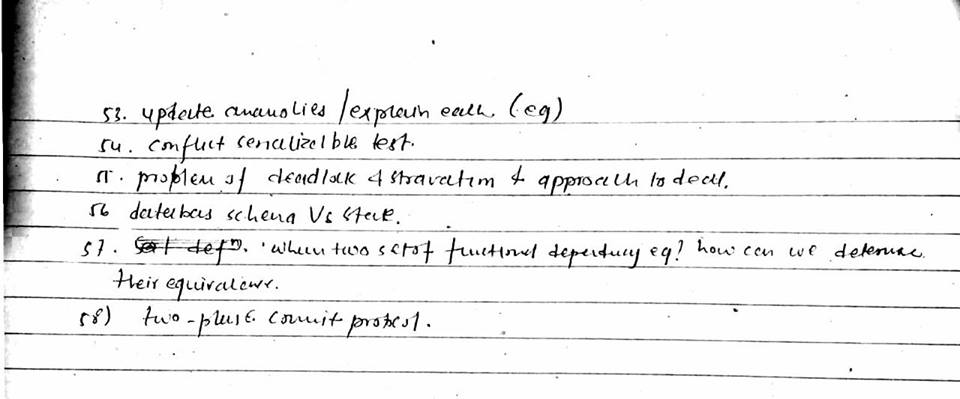 53. update anamolies / explain each. (eg)
54. conflict serializible test.
55. problem of deadlock & stravation & approach to deal.
56 database schema Vs state.
57. defn. when two set of functional dependency eq? how can we determine
their equivalence.
58) two-phase commit protocol.